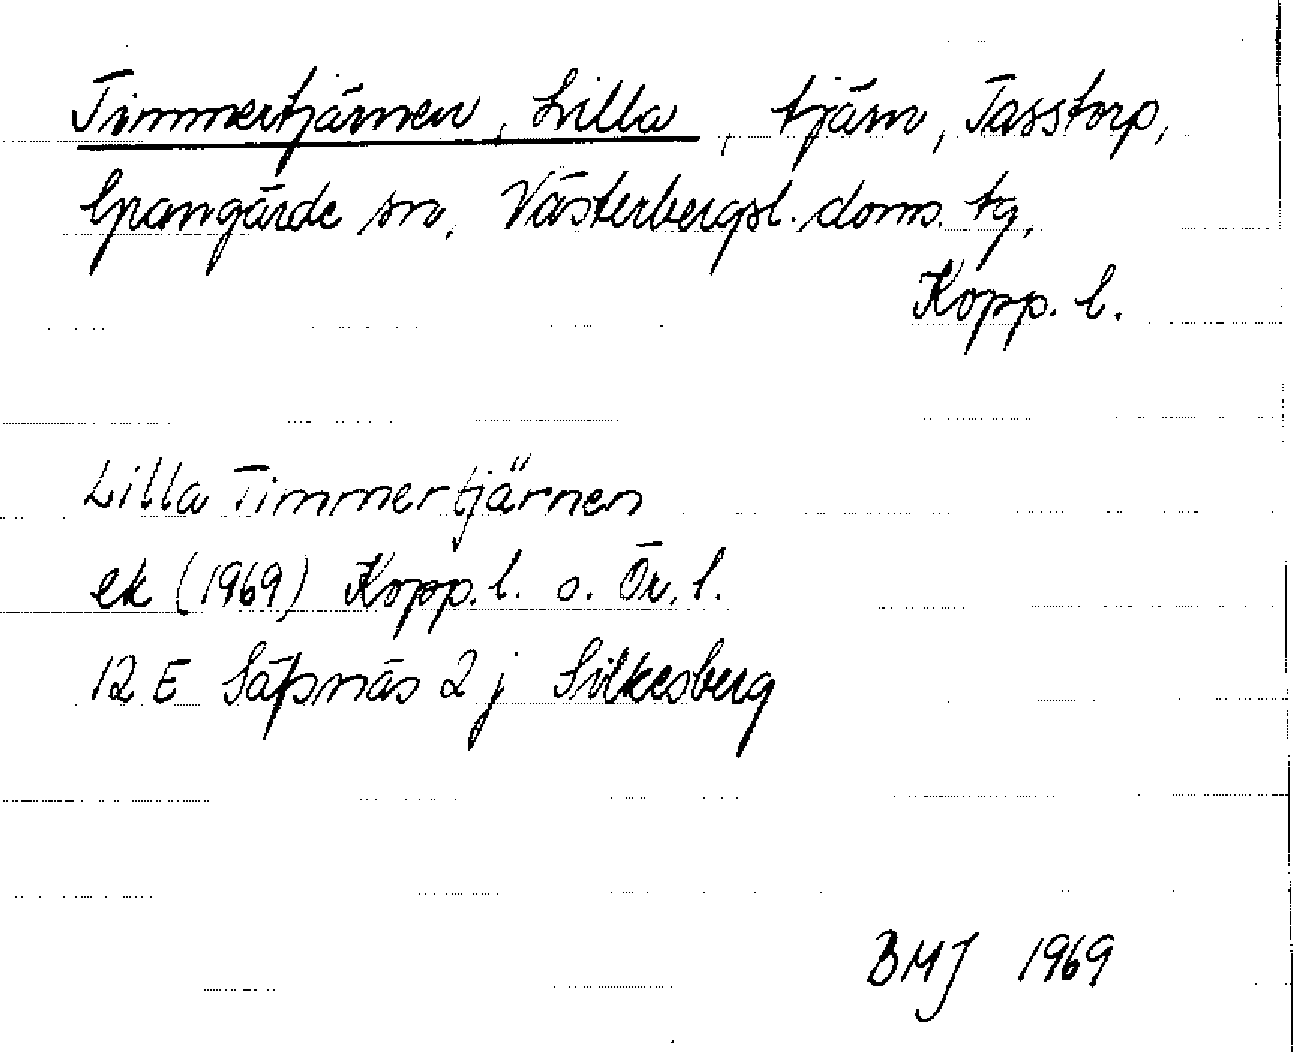 Timmertjärnen, Lilla, tjärn, Tasstorp,
Grangärde sn. Västerbergsl. doms. tg,
Kopp. l.
Lilla Timmertjärnen
ek (1969) Kopp. l. o. Ör. l.
12 E Säfsnäs 2 j Silkesberg
BMJ 1969